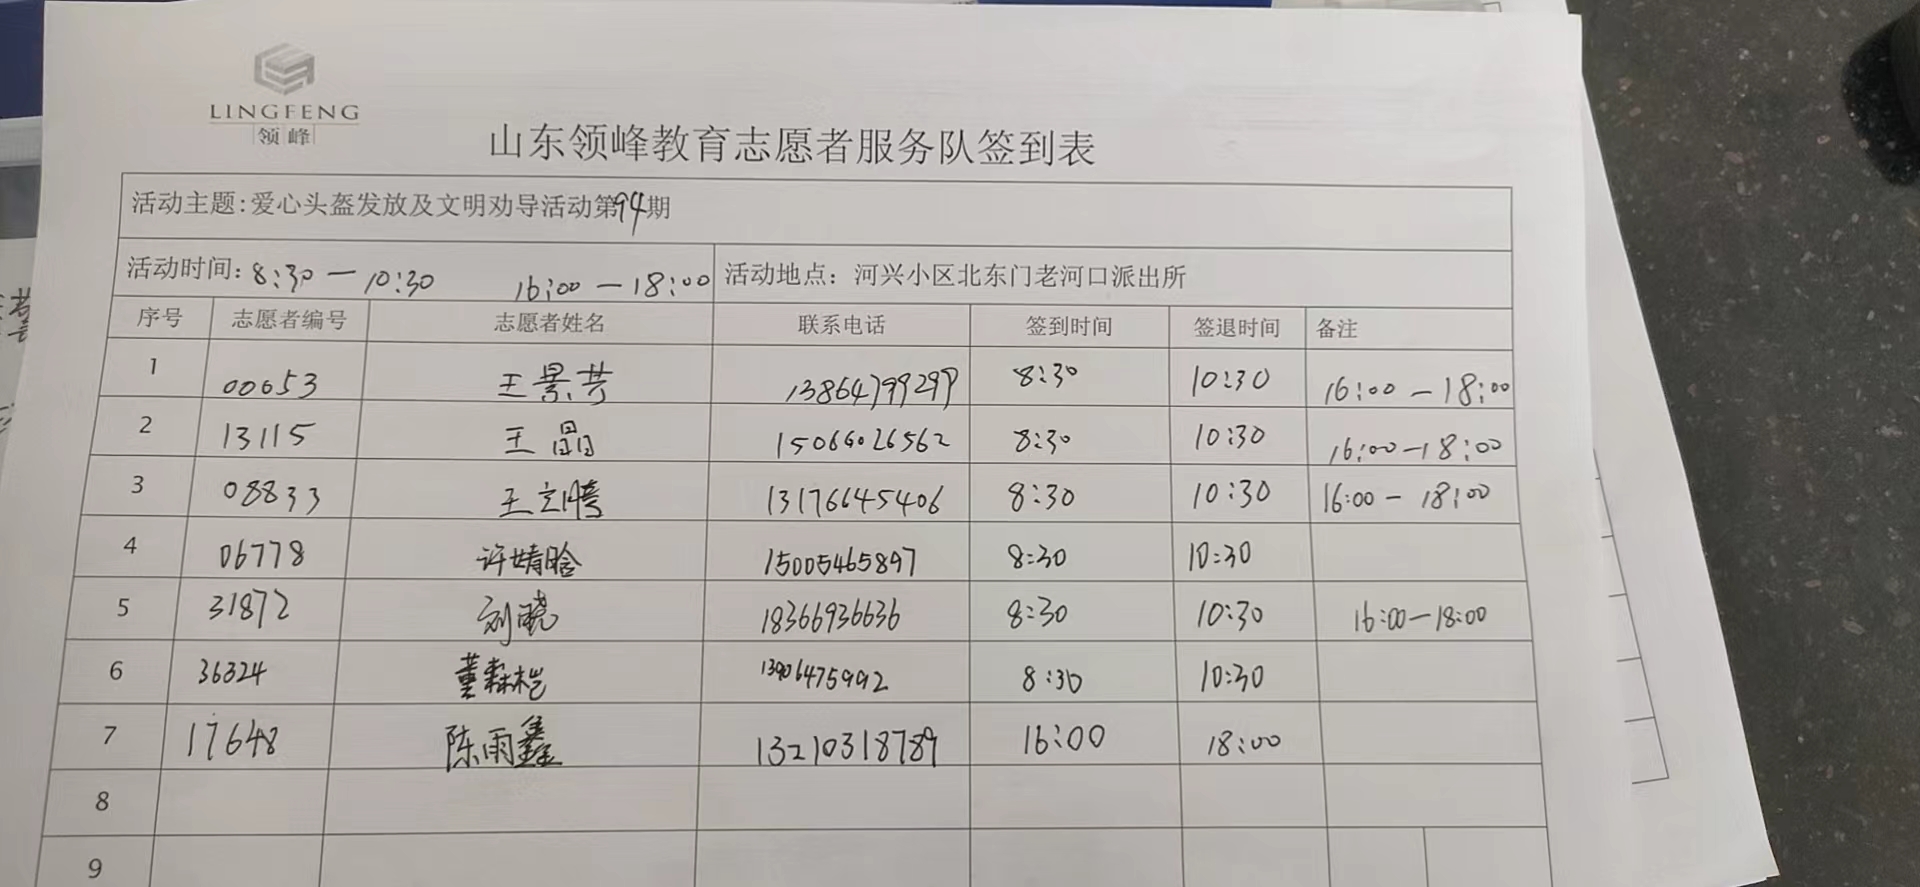 LINGFENG
领峰
山东领峰教育志愿者服务队签到表
活动主题:爱心头盔发放及文明劝导活动第94期
活动时间:8:30—10:30 16:00—18:00 活动地点：河兴小区北东门老河口派出所
序号 志愿者编号 志愿者姓名 联系电话 签到时间 签退时间 备注
1 00053 王景芳 13864799299 8:30 10:30 16:00—18:00
2 13115 王晶 15066026562 8:30 10:30 16:00—18:00
3 08833 王立聘 13176645406 8:30 10:30 16:00—18:00
4 06778 许婧晗 15005465897 8:30 10:30
5 31872 刘晓 18366936636 8:30 10:30 16:00—18:00
6 36324 董森桤 13906475992 8:30 10:30
7 17648 陈雨鑫 13210318789 16:00 18:00
8
9